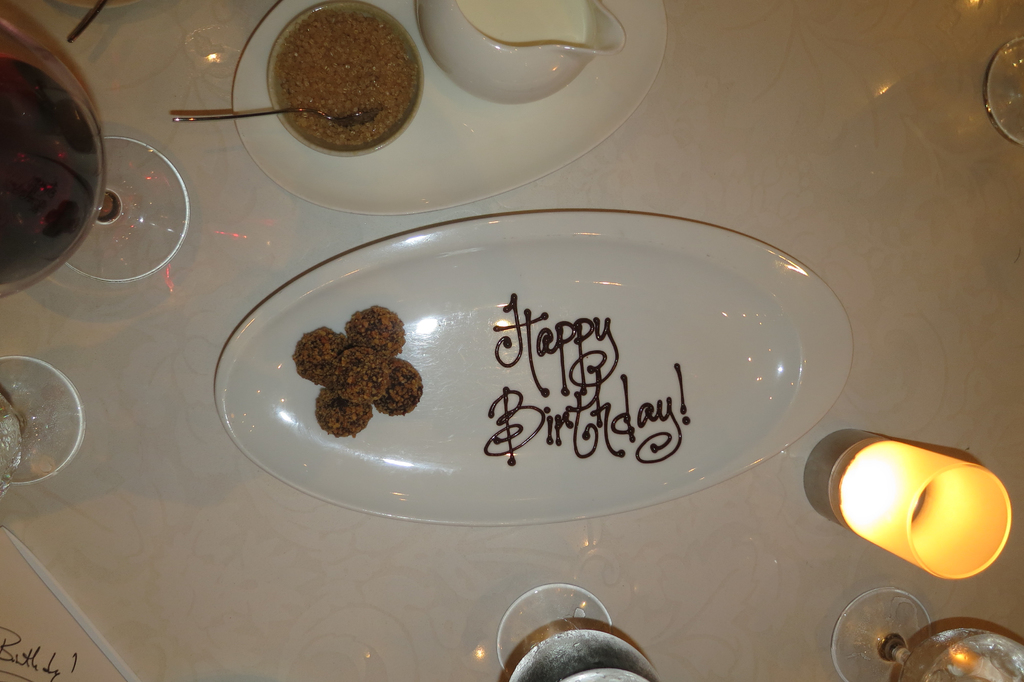 Happy
Birthday!
Birthday!